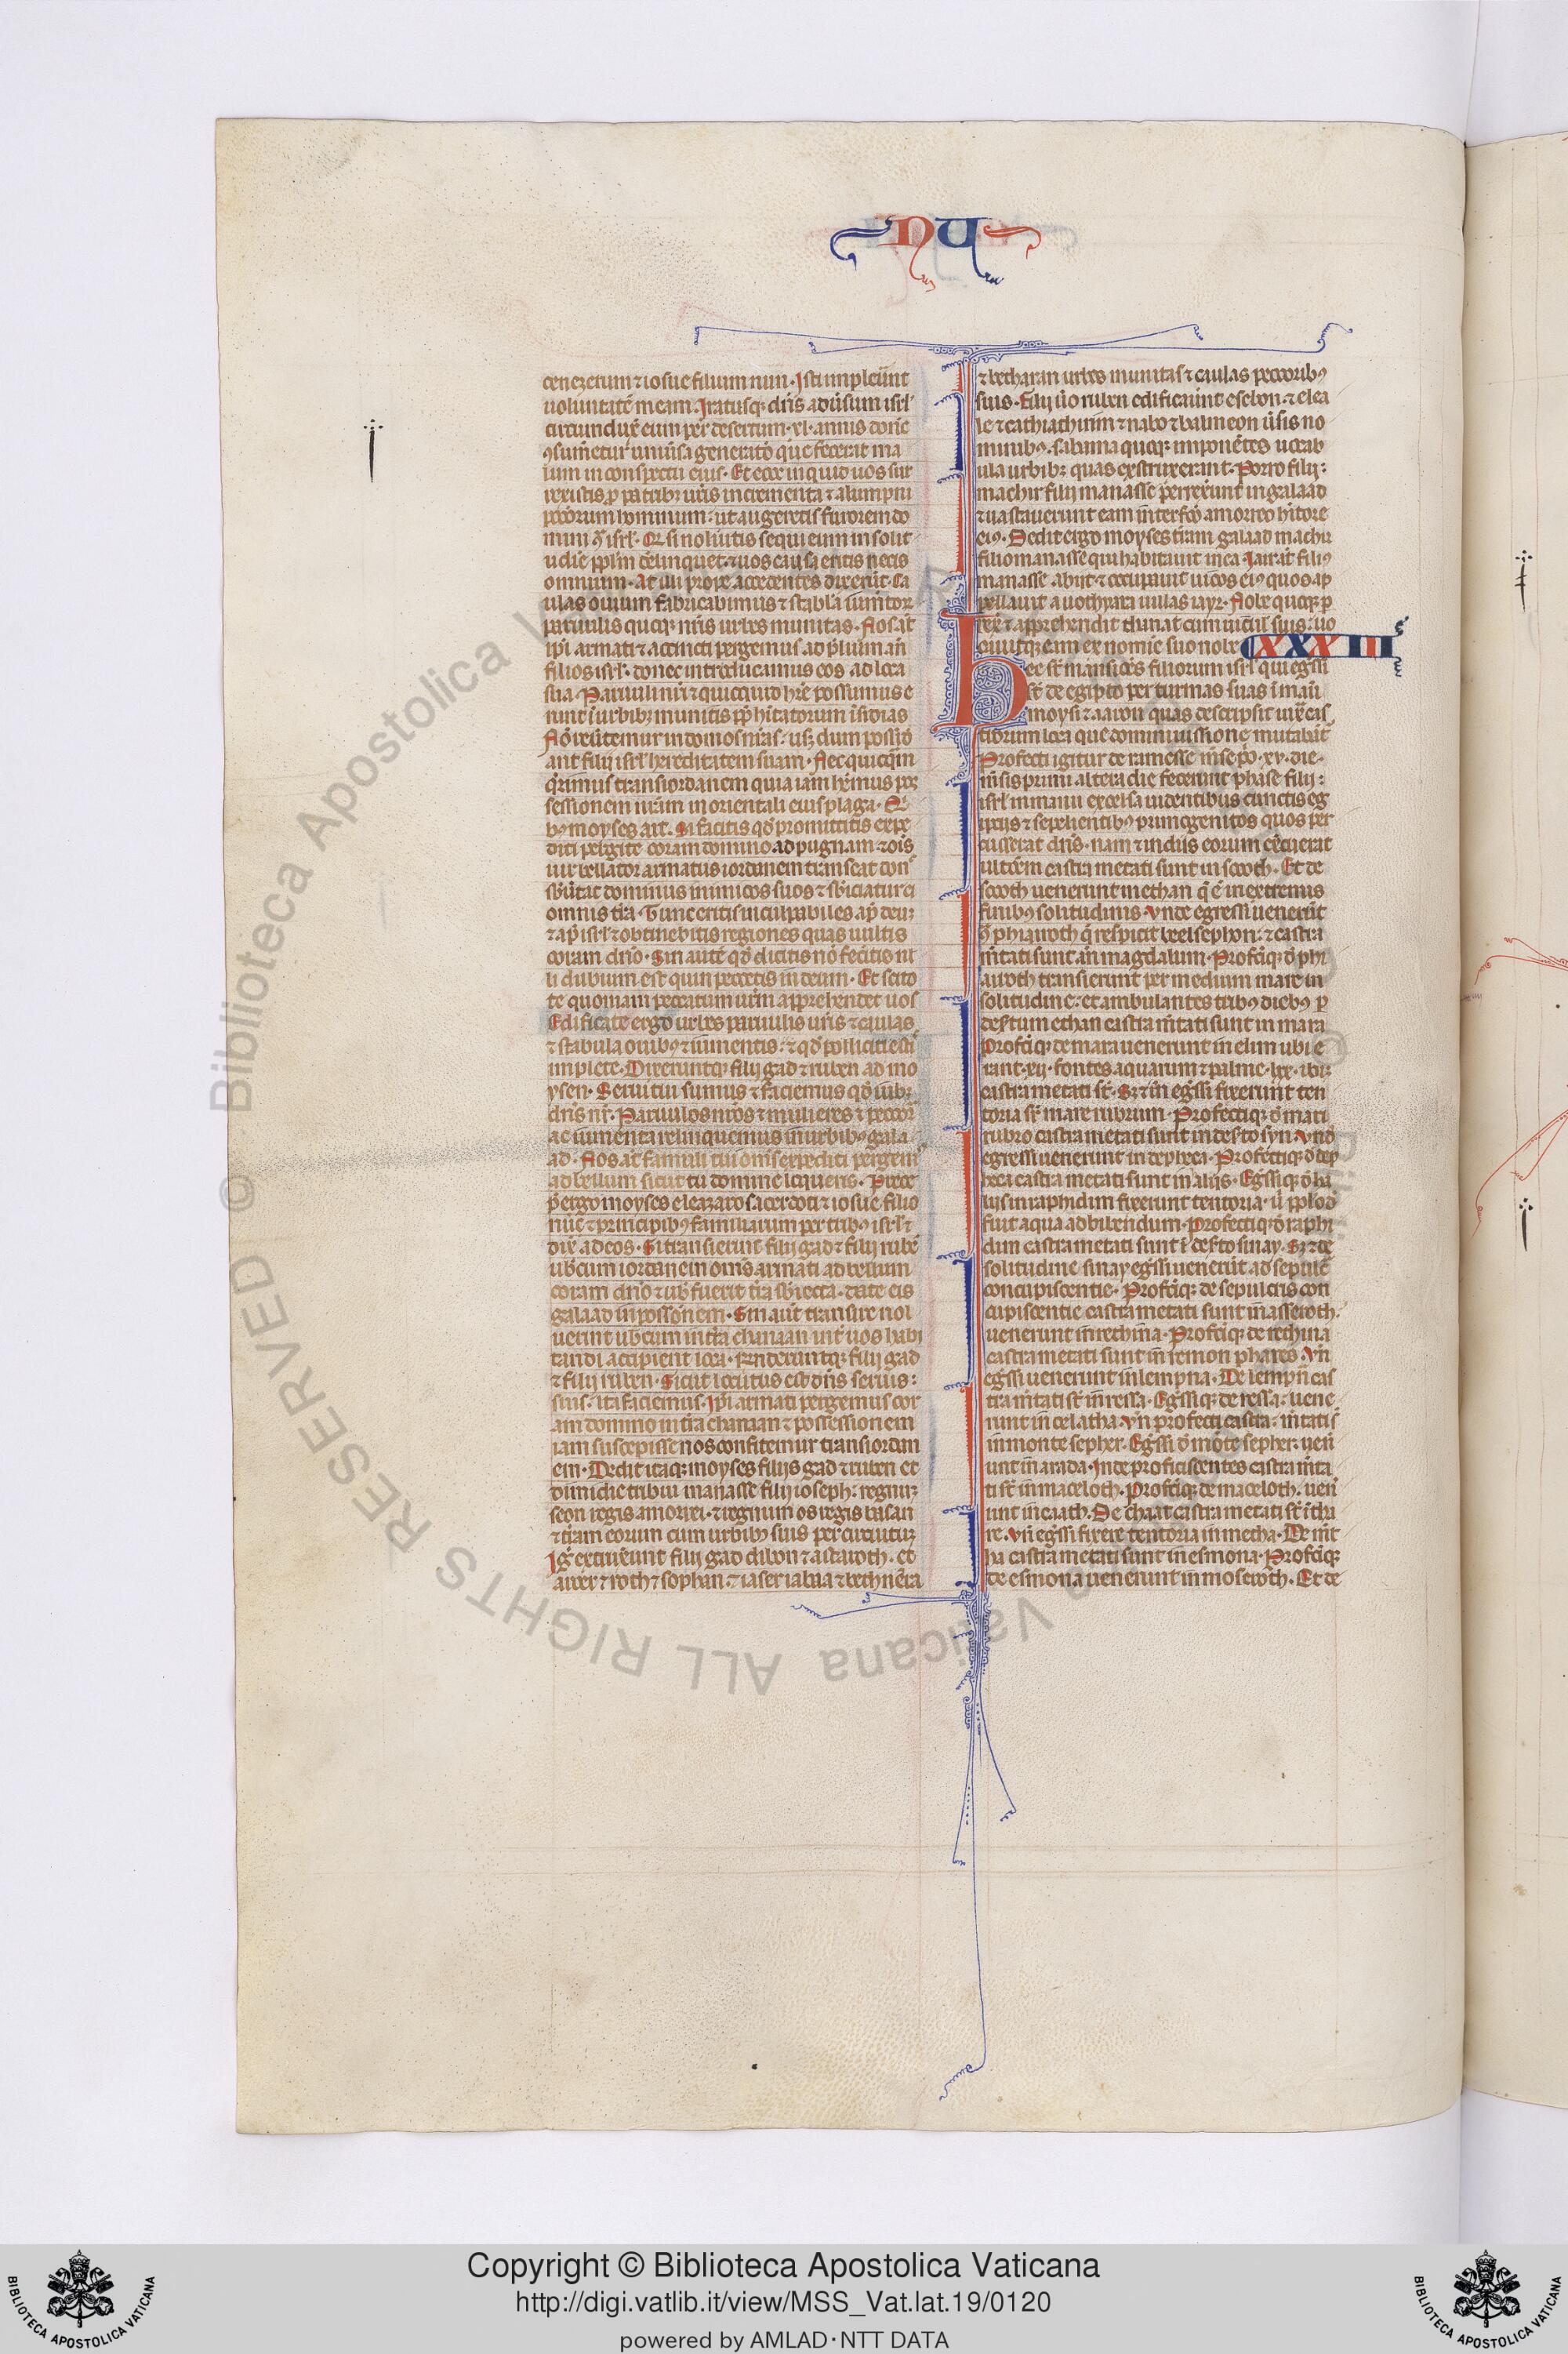 NU
cenezeum ⁊ iosue filium nun. Isti impleuer̄t
uoluntatē meam. Iratusq; dn̄s aduersum isrl'
circunduxit eum per desertum .xl. annis donec
ꝯsumeretur uniuersa generatio que fecerat ma
lum in conspectu eius. Et ecce inquid uos sur
rexistis ꝓ patribꝫ ur̄is incrementa ⁊ alumpni
pecc̄orum hominum. ut augeretis furorem do
mini ꝯ̄ isrl'. Qđ si nolueritis sequi eum in solit
udine pplm derelinquet. ⁊ uos causa eritis necis
omnium. At illi prope accedentes dixerūt. Ca
ulas ouium fabricabimus ⁊ stabula iumentor
paruulis quoqꝫ nr̄is urbes munitas. Nos at̄
ip̄i armati ⁊ accincti pergemus ad prelium an̄
filios isrl'. donec introducamus eos ad loca
sua. Paruuli nr̄i ⁊ quicquid hr̄e possumus e
runt ī urbibꝫ munitis ꝓpt̄ hītatorum insidias
Nō reuertemur in domos nr̄as. usqꝫ dum possid
eant filii isrl' hereditatem suam. Nec quicq̄m
q̄rimus trans iordanem quia iam habemus pos
sessionem nr̄am in orientali eius plaga. Qi
bꝰ moyses ait. Si facitis qđ promittitis expe
diti pergite coram domino ad pugnam. ⁊ oīs
uir bellator armatus iordanem transeat don̄
sb̄uertat dominus inimicos suos ⁊ sb̄iciatur ei
omnis tr̄a. Tunc eritis inculpabiles ap̄ deuꝫ
⁊ ap̄ isrl' ⁊ obtinebitis regiones quas uultis
coram dn̄o. Sin autē qđ dicitis nō feceritis nl
li dubium est quin peccetis in deum. Et scito
te quoniam peccatum ur̄m apprehendet uos
Edificate ergo urbes paruulis ur̄is ⁊ caulas
⁊ stabula ouibꝰ ⁊ iumentis. ⁊ qđ polliciti estis
implete. Dixeruntqꝫ filij gad ⁊ ruben ad mo
ysen. Serui tui sumus ⁊ faciemus qđ iubꝫ
dn̄s nr̄. Paruulos nr̄os ⁊ mulieres ⁊ peccor̄
ac iumenta relinquemus in urbibꝰ gala
ad. Nos at̄ famuli tui om̄s expediti pergem̄
ad bellum sicut tu domine loqueris. Prece
p̄ ergo moyses eleazaro sacerdoti ⁊ iosue filio
nun ⁊ principibꝰ familiarum per tribꝰ isrl' ⁊
dix̄ ad eos. Si transierint filij gad ⁊ filij rubē
uob̄cum iordanem om̄s armati ad bellum
coram dn̄o ⁊ uob̄ fuerit tr̄a sb̄iecta. date eis
galaad in possōnem. Sin aut̄ transire nol
uerint uob̄cum in tr̄a chanaan int̄ uos habi
tandi accipient loca. Responderuntqꝫ filij gad
⁊ filij ruben. Sicut locutus est dn̄s seruis
suis. ita faciemus. Ip̄i armati pergemus cor
am domino in tr̄a chanaan ⁊ possessionem
iam suscepisse nos confitemur trans iordan
em. Dedit itaqꝫ moyses filijs gad ⁊ ruben et
dimidie tribui manasse filij ioseph. regnuꝫ
seon regis amorrei. ⁊ regnum os regis basan
⁊ tr̄am eorum cum urbibꝰ suis per circuituꝫ
Ig̃ extruxerunt filij gad dibon ⁊ astaroth. et
aroer ⁊ roth ⁊ sophan. ⁊ iaser iabaa ⁊ bethnera
⁊ betharan urbes munitas ⁊ caulas peccoribꝰ
suis. Filij uō ruben edificauer̄t esebon. ⁊ elea
le ⁊ cariathiarim ⁊ nabo ⁊ balmeon uersis no
minibꝰ. sabama quoqꝫ imponētes uocab
ula urbibꝫ quas exstruxerant. Porro filij
machir filij manasse perrexerunt in galaad
⁊ uastauerunt eam interfecto amorreo hītore
eiꝰ. Dedit ergo moyses tr̄am galaad machir
filio manasse qui habitauit in ea. Iair at̄ filiꝰ
manasse abiit ⁊ occupauit uicos eiꝰ quos ap
pellauit auothyair uillas iayr. Nobe quoqꝫ p
rex̄ ⁊ apprehendit chanat cum uiculis suis. uo
cauitqꝫ eam ex nomine suo nobe XXXIII
Hec st̄ mansiōes filiorum isrl' qui egssi
st̄ de egipto per turmas suas ī manu
moysi ⁊ aaron quas descripsit iux̄ cas
trorum loca que domini iussione mutabāt
Profecti igitur de ramesse mense p̄o .xv. die
mensis primi altera die fecerunt phase filij
isrl' in manu excelsa uidentibus cunctis eg
iptijs ⁊ sepelientibꝰ primogenitos quos per
cusserat dn̄s. nam ⁊ in dijs eorum exercuerat
ultōem castra metati sunt in socoth. Et de
socoth uenerunt in ethan q̄ ē in extremis
finibꝰ solitudinis. Vnde egressi uenerūt
ꝯ̄ phiairoth q̄ respicit beelsephon. ⁊ castra
metati sunt an̄ magdalum. Profectiqꝫ đ phi
airoth transierunt per medium mare in
solitudinem. et ambulantes tribꝰ diebꝰ p
desertum ethan castra metati sunt in mara
Profectiqꝫ de mara uenerunt in elim ubi e
rant .xij. fontes aquarum ⁊ palme .lxx. ibiqꝫ
castra metati st̄. Sꝫ ⁊ in̄ egssi fixerunt ten
toria sr̄ mare rubrum. Profectiqꝫ đ mari
rubro castra metati sunt in deserto syn. Vnđ
egressi uenerunt in depheca. Profectiqꝫ đ dep
heca castra metati sunt in alijs. Egssiqꝫ đ ha
lijs in raphidim fixerunt tentoria. ubi pplo đ
fuit aqua ad bibendum. Profectiqꝫ đ raphi
dim castra metati sunt ī deserto sinay. Sꝫ ⁊ de
solitudine sinay egssi uenerūt ad sepulcra
concupiscentie. Profectiqꝫ de sepulcris con
cupiscentie castra metati sunt in asseroth.
uenerunt in rethma. Profectiqꝫ de rethma
castra metati sunt in remon phares. Vn̄
egssi uenerunt in lempna. De lempna cas
tra metati st̄ in ressa. Egssiqꝫ de ressa. uene
runt in celatha. Vn̄ profecti castra metati s̄
in monte sepher. Egssi đ mōte sepher. uen̄
unt in arada. Inde proficiscentes castra meta
ti st̄ in maceloth. Profectiqꝫ de maceloth. uen̄
unt in caath. De chaat castra metati st̄ ī tha
re. Vn̄ egssi fixere tentoria in metha. De met
ha castra metati sunt in esmona. Profectiqꝫ
de esmona uenerunt in moseroth. Et de
© Biblioteca Apostolica Vaticana ALL RIGHTS RESERVED
Copyright © Biblioteca Apostolica Vaticana
http://digi.vatlib.it/view/MSS_Vat.lat.19/0120
powered by AMLAD·NTT DATA
BIBLIOTECA APOSTOLICA VATICANA
BIBLIOTECA APOSTOLICA VATICANA